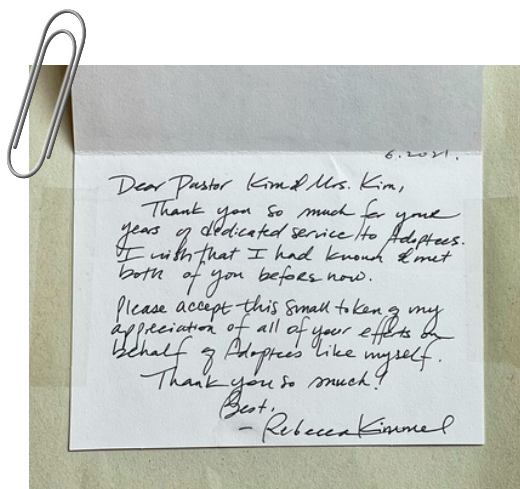 6.2021.
Dear Pastor Kim & Mrs. Kim,
Thank you so much for your
years of dedicated service to Adoptees.
I wish that I had known & met
both of you before now.
Please accept this small token of my
appreciation of all of your efforts on
behalf of Adoptees like myself.
Thank you so much!
Best,
- Rebecca Kimmel